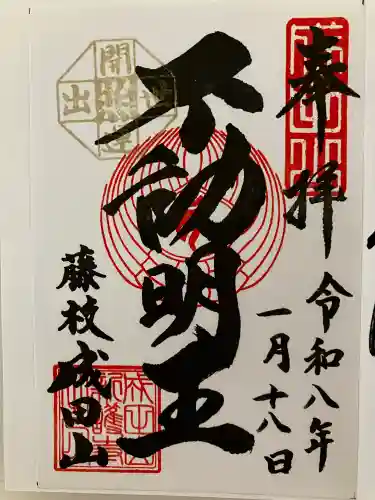 奉拝
令和八年
一月十八日
不動明王
藤枝成田山